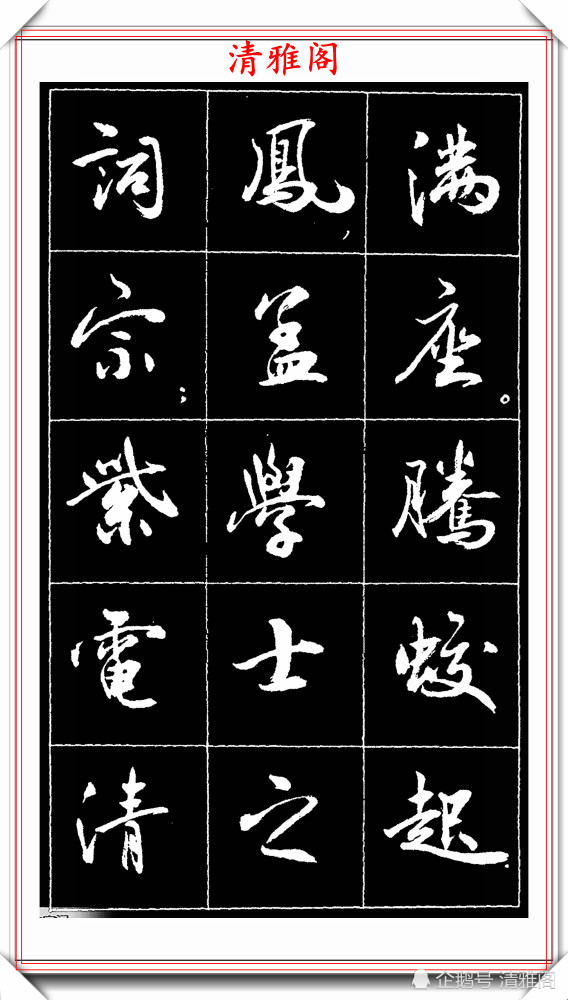 清雅阁
满座。腾蛟起
鳳，孟學士之
詞宗；紫電清
企鹅号 清雅阁